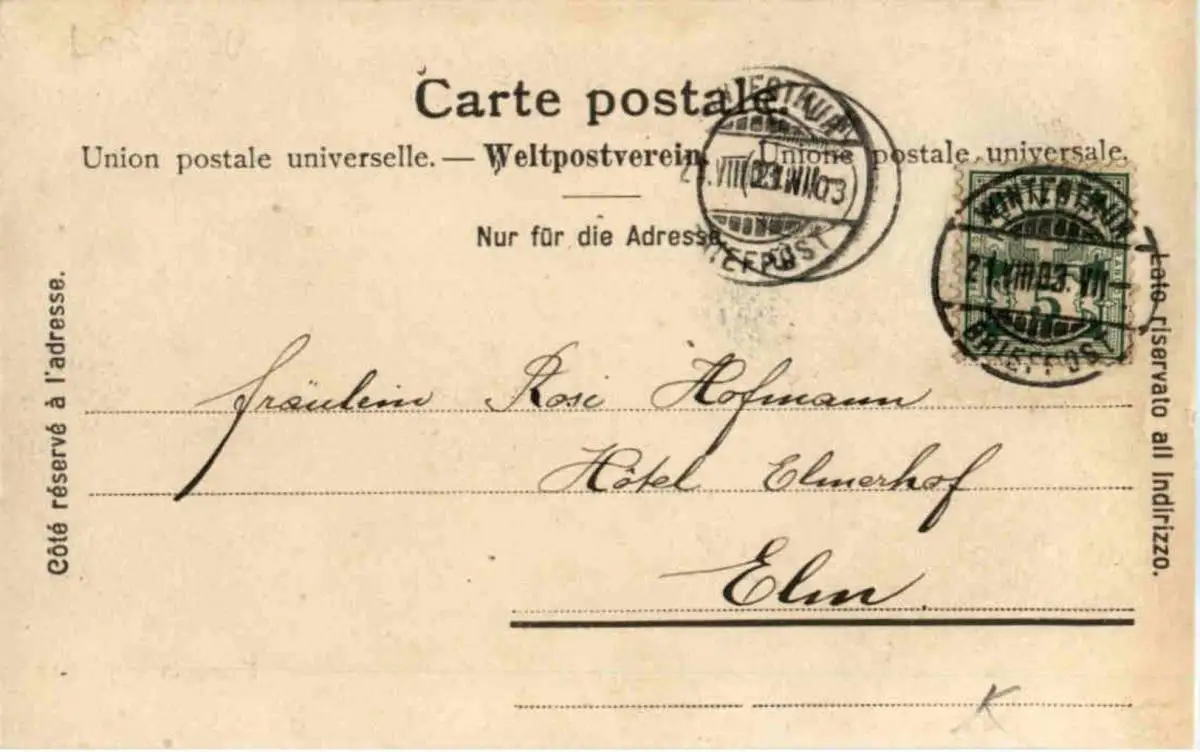 Carte postale.
Union postale universelle. — Weltpostverein. Unione postale universale.
Nur für die Adresse.
Côté réservé à l'adresse.
Fräulein Rosi Hofmann
Hôtel Elmerhof
Elm
Lato riservato all indirizzo.
WINTERTHUR
21.VIII.03. VII
BRIEFPOST
5
K